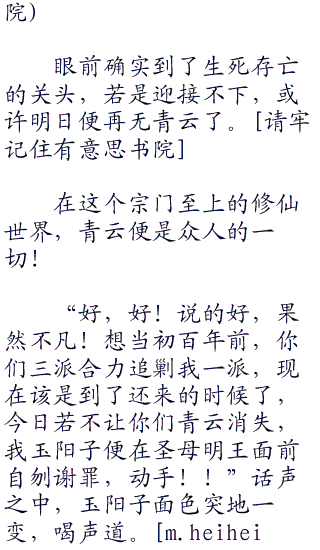 院）
眼前确实到了生死存亡
的关头，若是迎接不下，或
许明日便再无青云了。[请牢
记住有意思书院]
在这个宗门至上的修仙
世界，青云便是众人的一
切！
“好，好！说的好，果
然不凡！想当初百年前，你
们三派合力追剿我一派，现
在该是到了还来的时候了，
今日若不让你们青云消失，
我玉阳子便在圣母明王面前
自刎谢罪，动手！！”话声
之中，玉阳子面色突地一
变，喝声道。[m.heihei